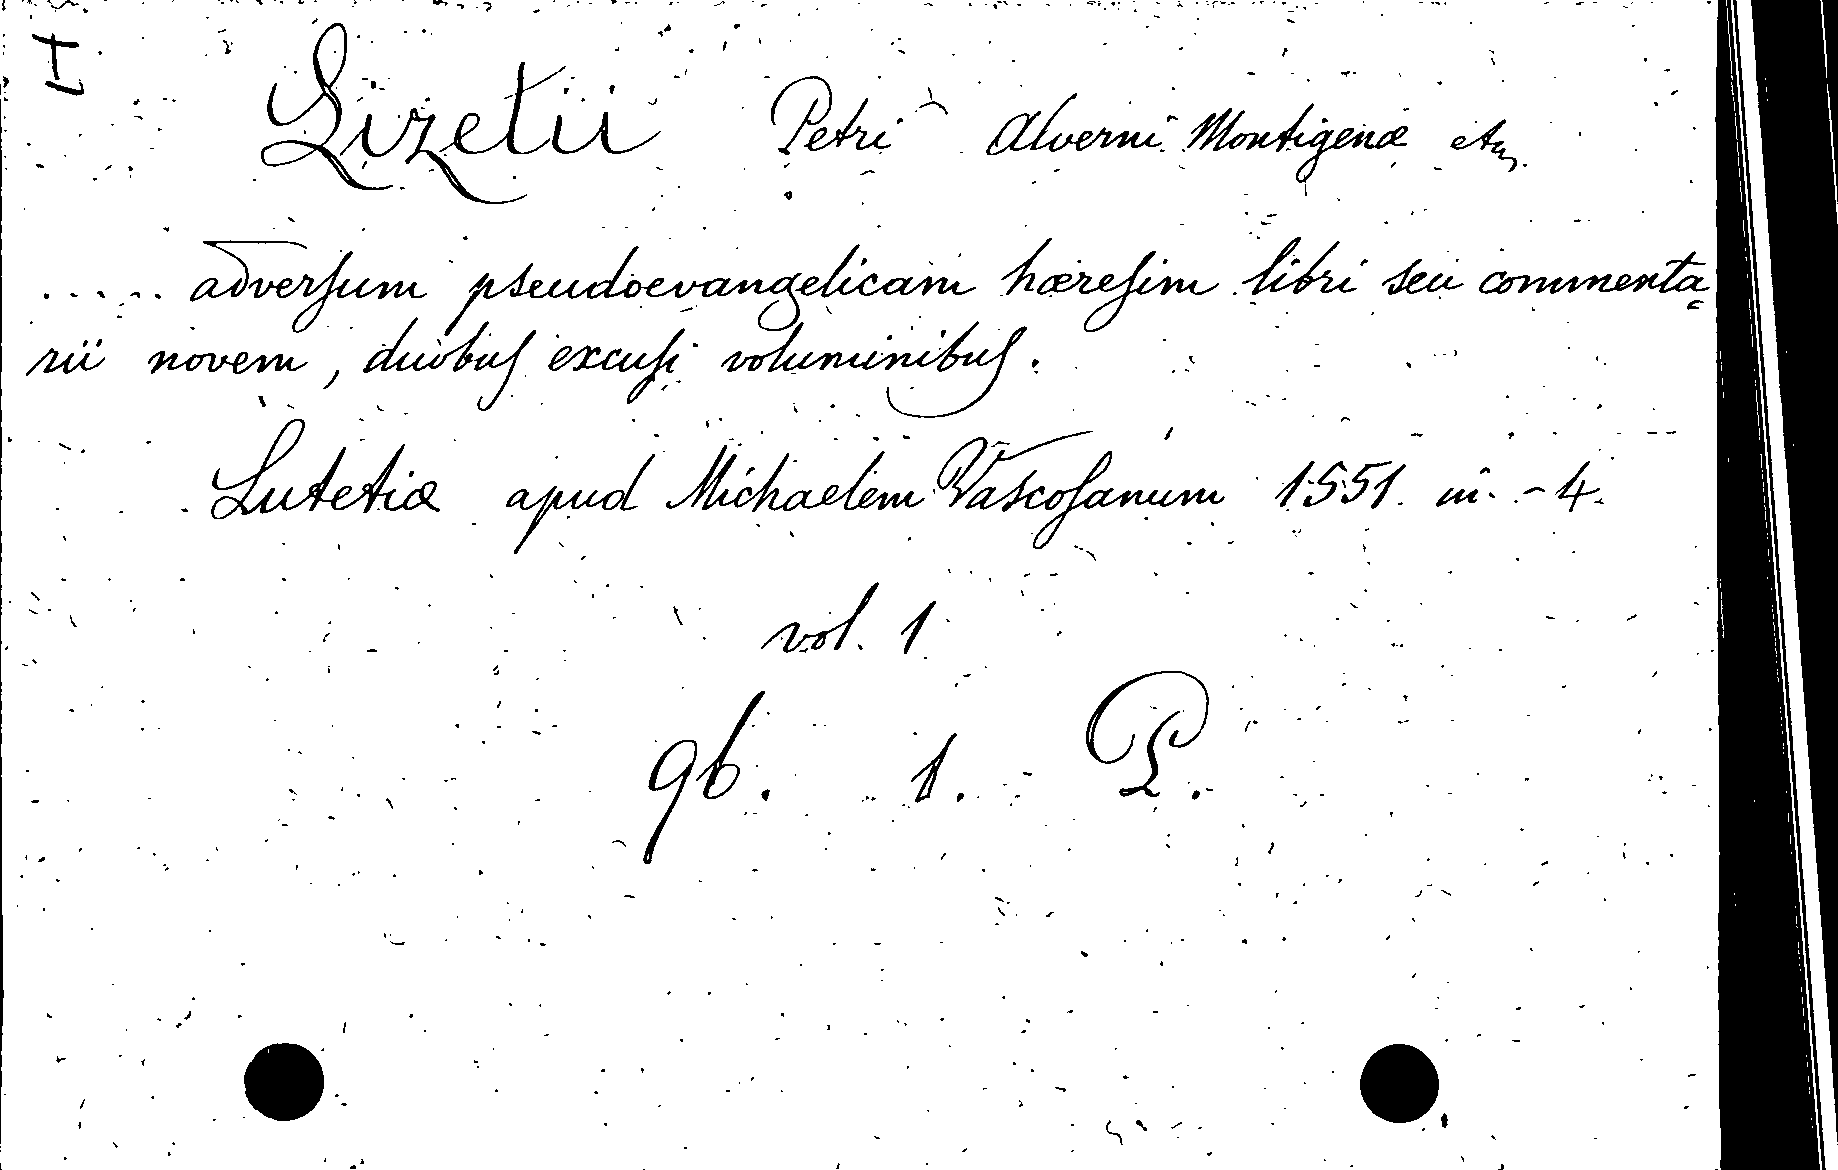 Lizetii Petri Alverni Montigenæ etc.
..... adversum pseudoevangelicam hæresim libri seu commenta=
rii novem, duobus excusi voluminibus.
Lutetiæ apud Michaelem Vascosanum 1551. in -4.
vol. 1
96. 1. P.